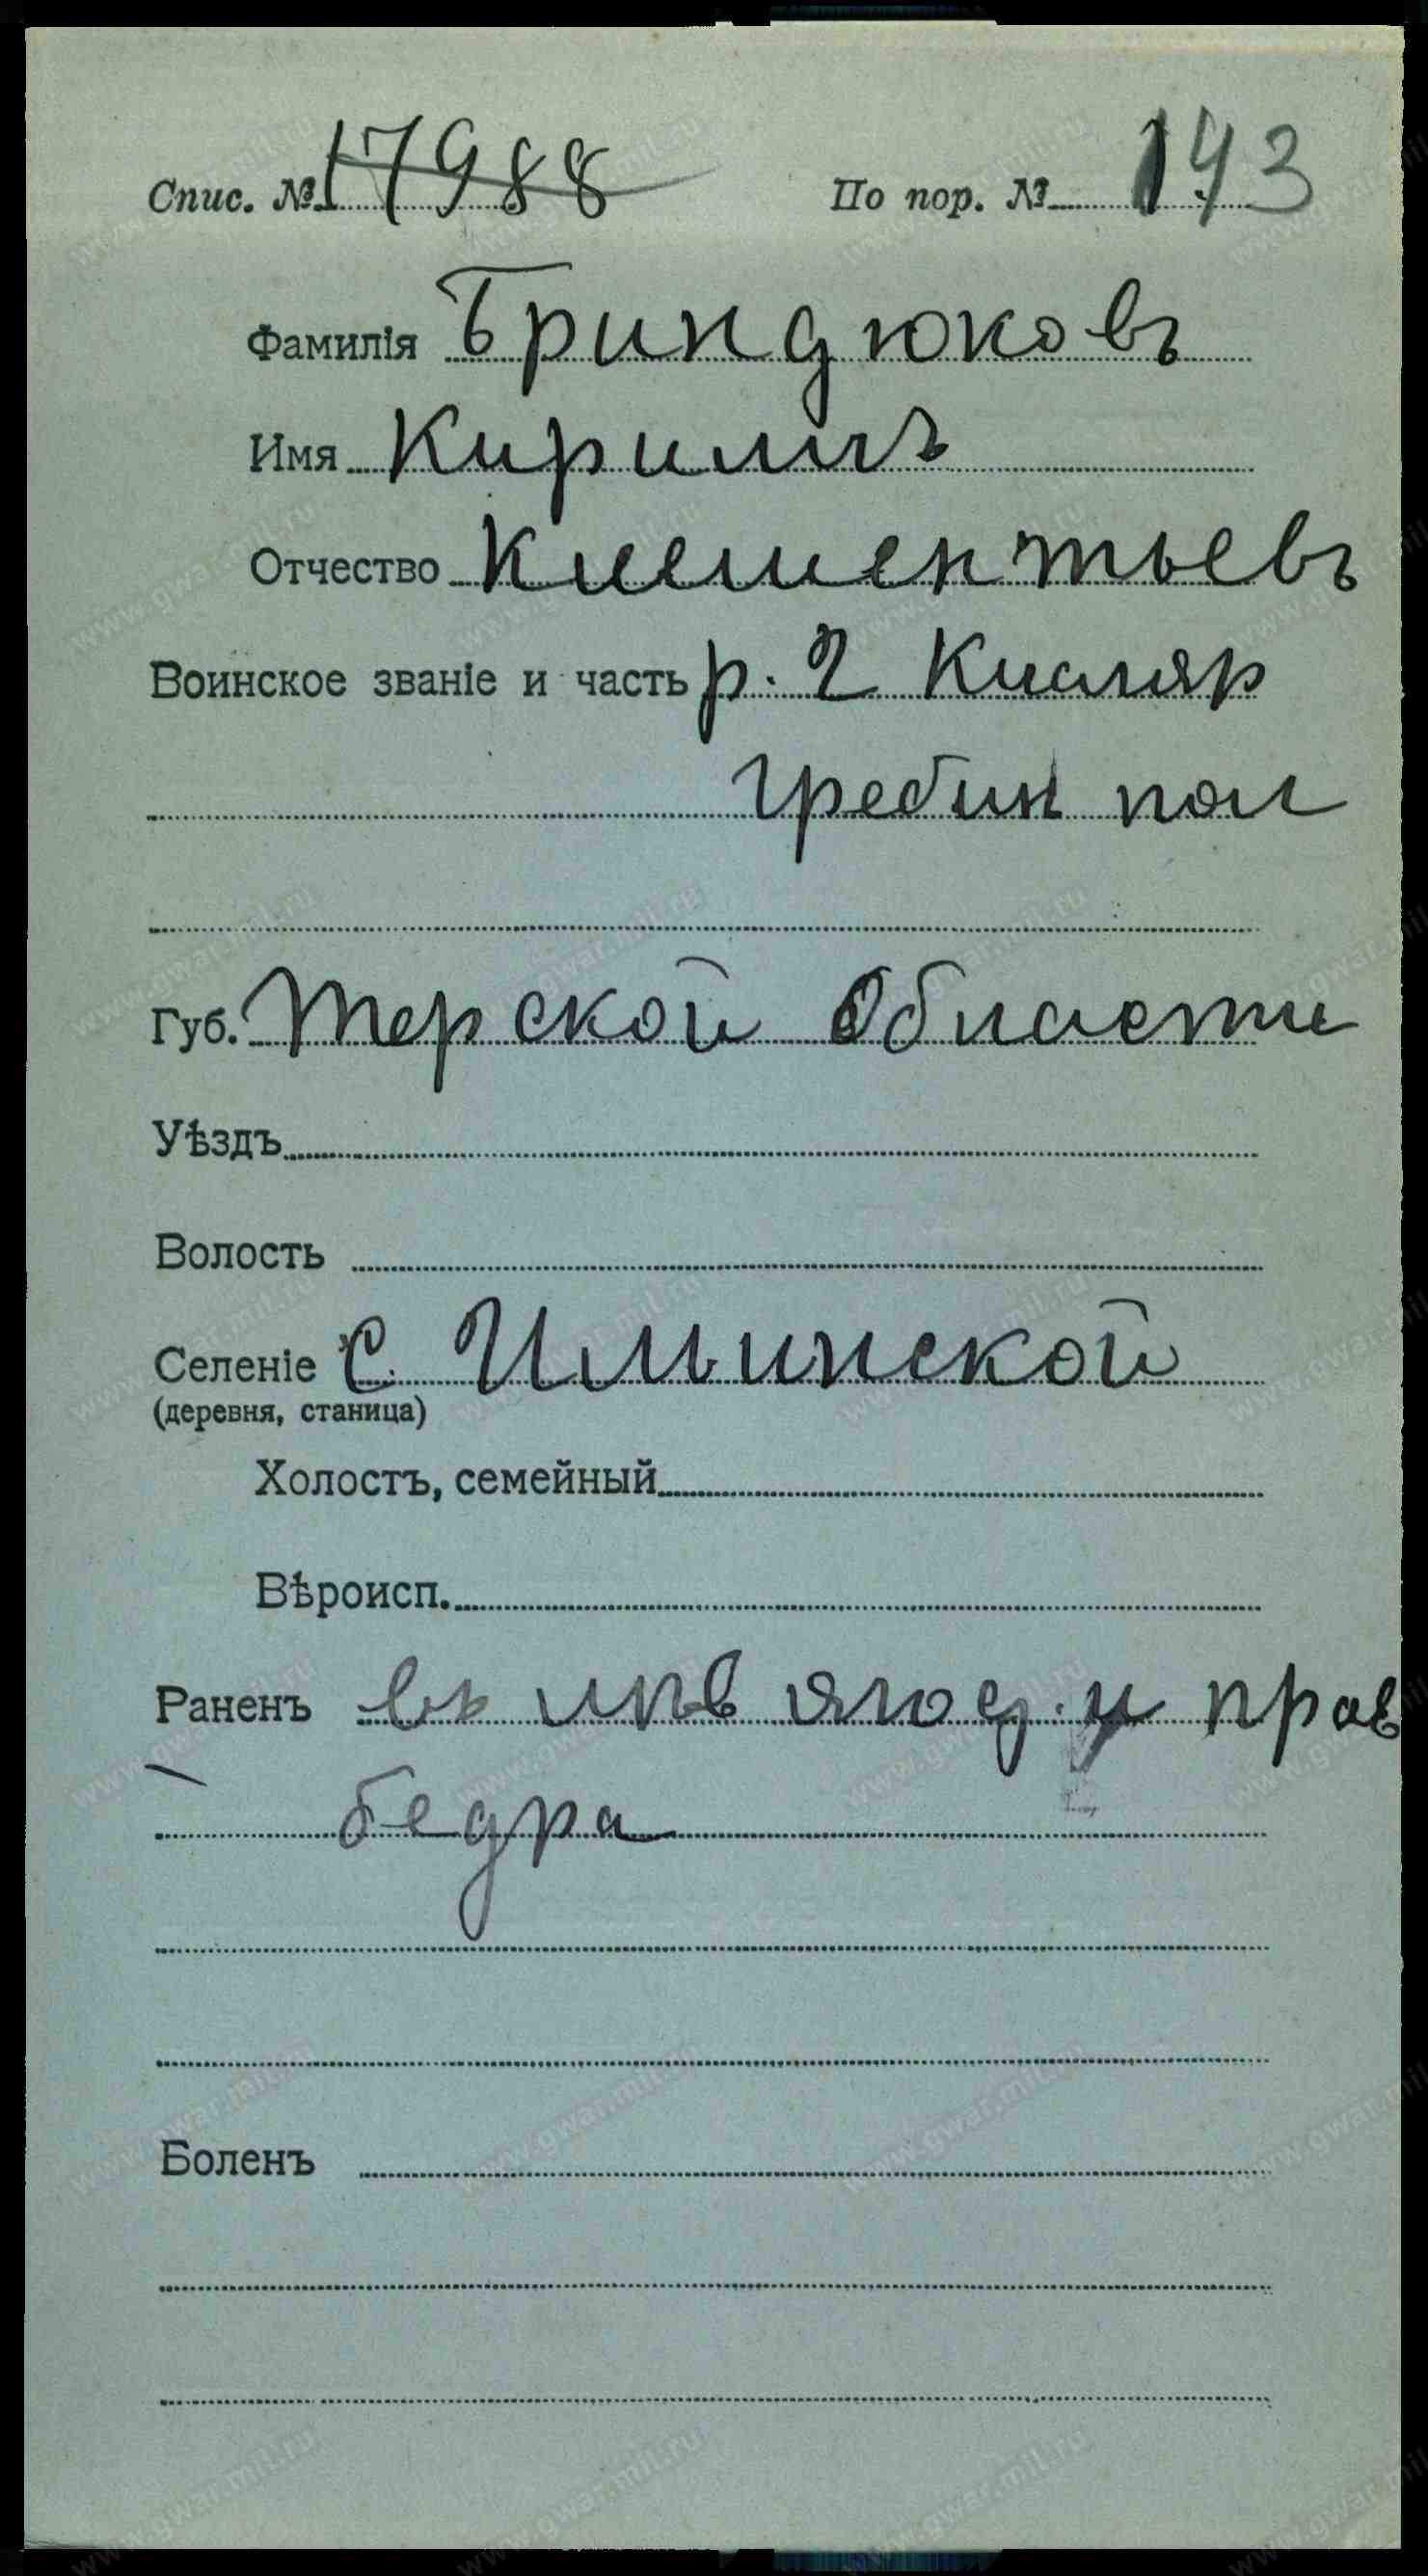 Спис. № 17988 По пор. № 143
Фамилія Бриндюковъ
Имя Кирилъ
Отчество Клементьевъ
Воинское званіе и часть р. 2 Кисляр
Гребин пол
Губ. Терской Области
Уѣздъ
Волость
Селеніе с. Ильинской
(деревня, станица)
Холостъ, семейный
Вѣроисп.
Раненъ въ лѣв ягод. и прав
бедра
Боленъ